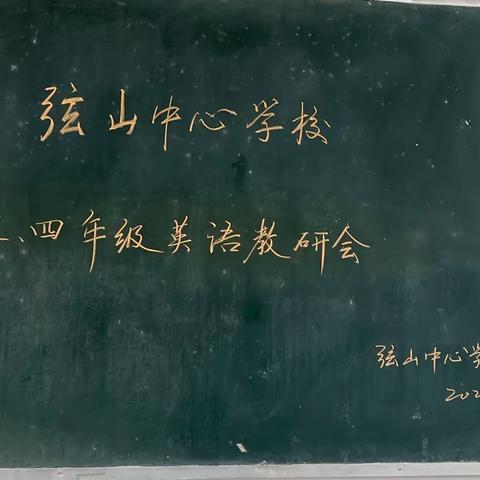 弦山中心学校
、四年级英语教研会
弦山中心学
202